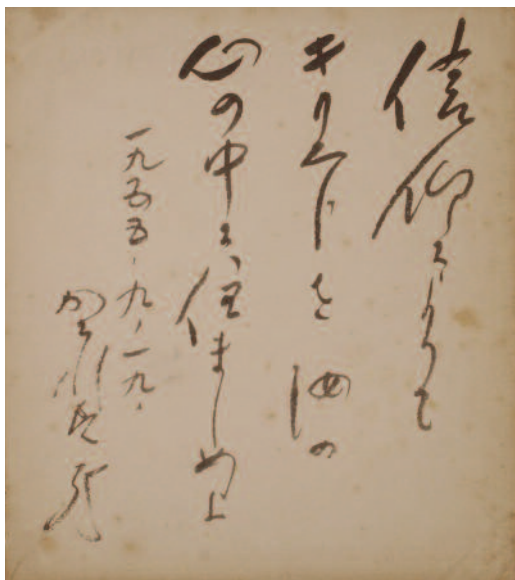 信仰によりて
キリストを汝の
心の中に住ましめよ
一九五五・九・一九・